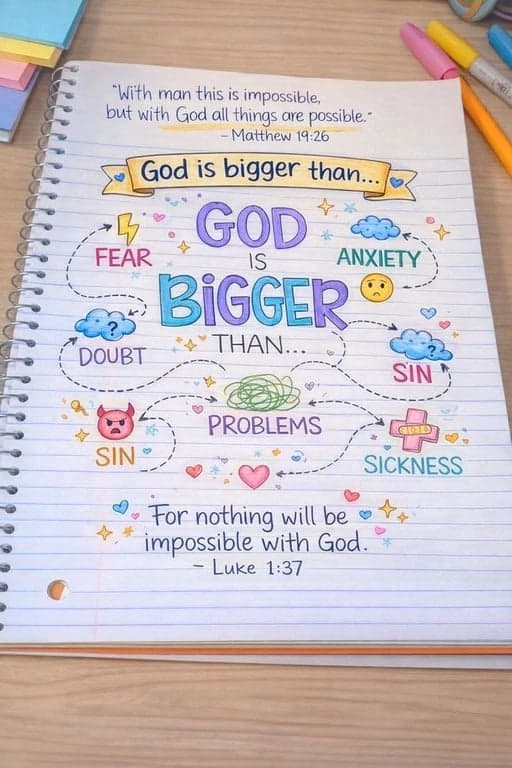 "With man this is impossible,
but with God all things are possible."
- Matthew 19:26
God is bigger than...
GOD
IS
BiGGER
THAN...
FEAR
ANXIETY
?
DOUBT
?
SIN
PROBLEMS
SIN
SICKNESS
For nothing will be
impossible with God.
- Luke 1:37